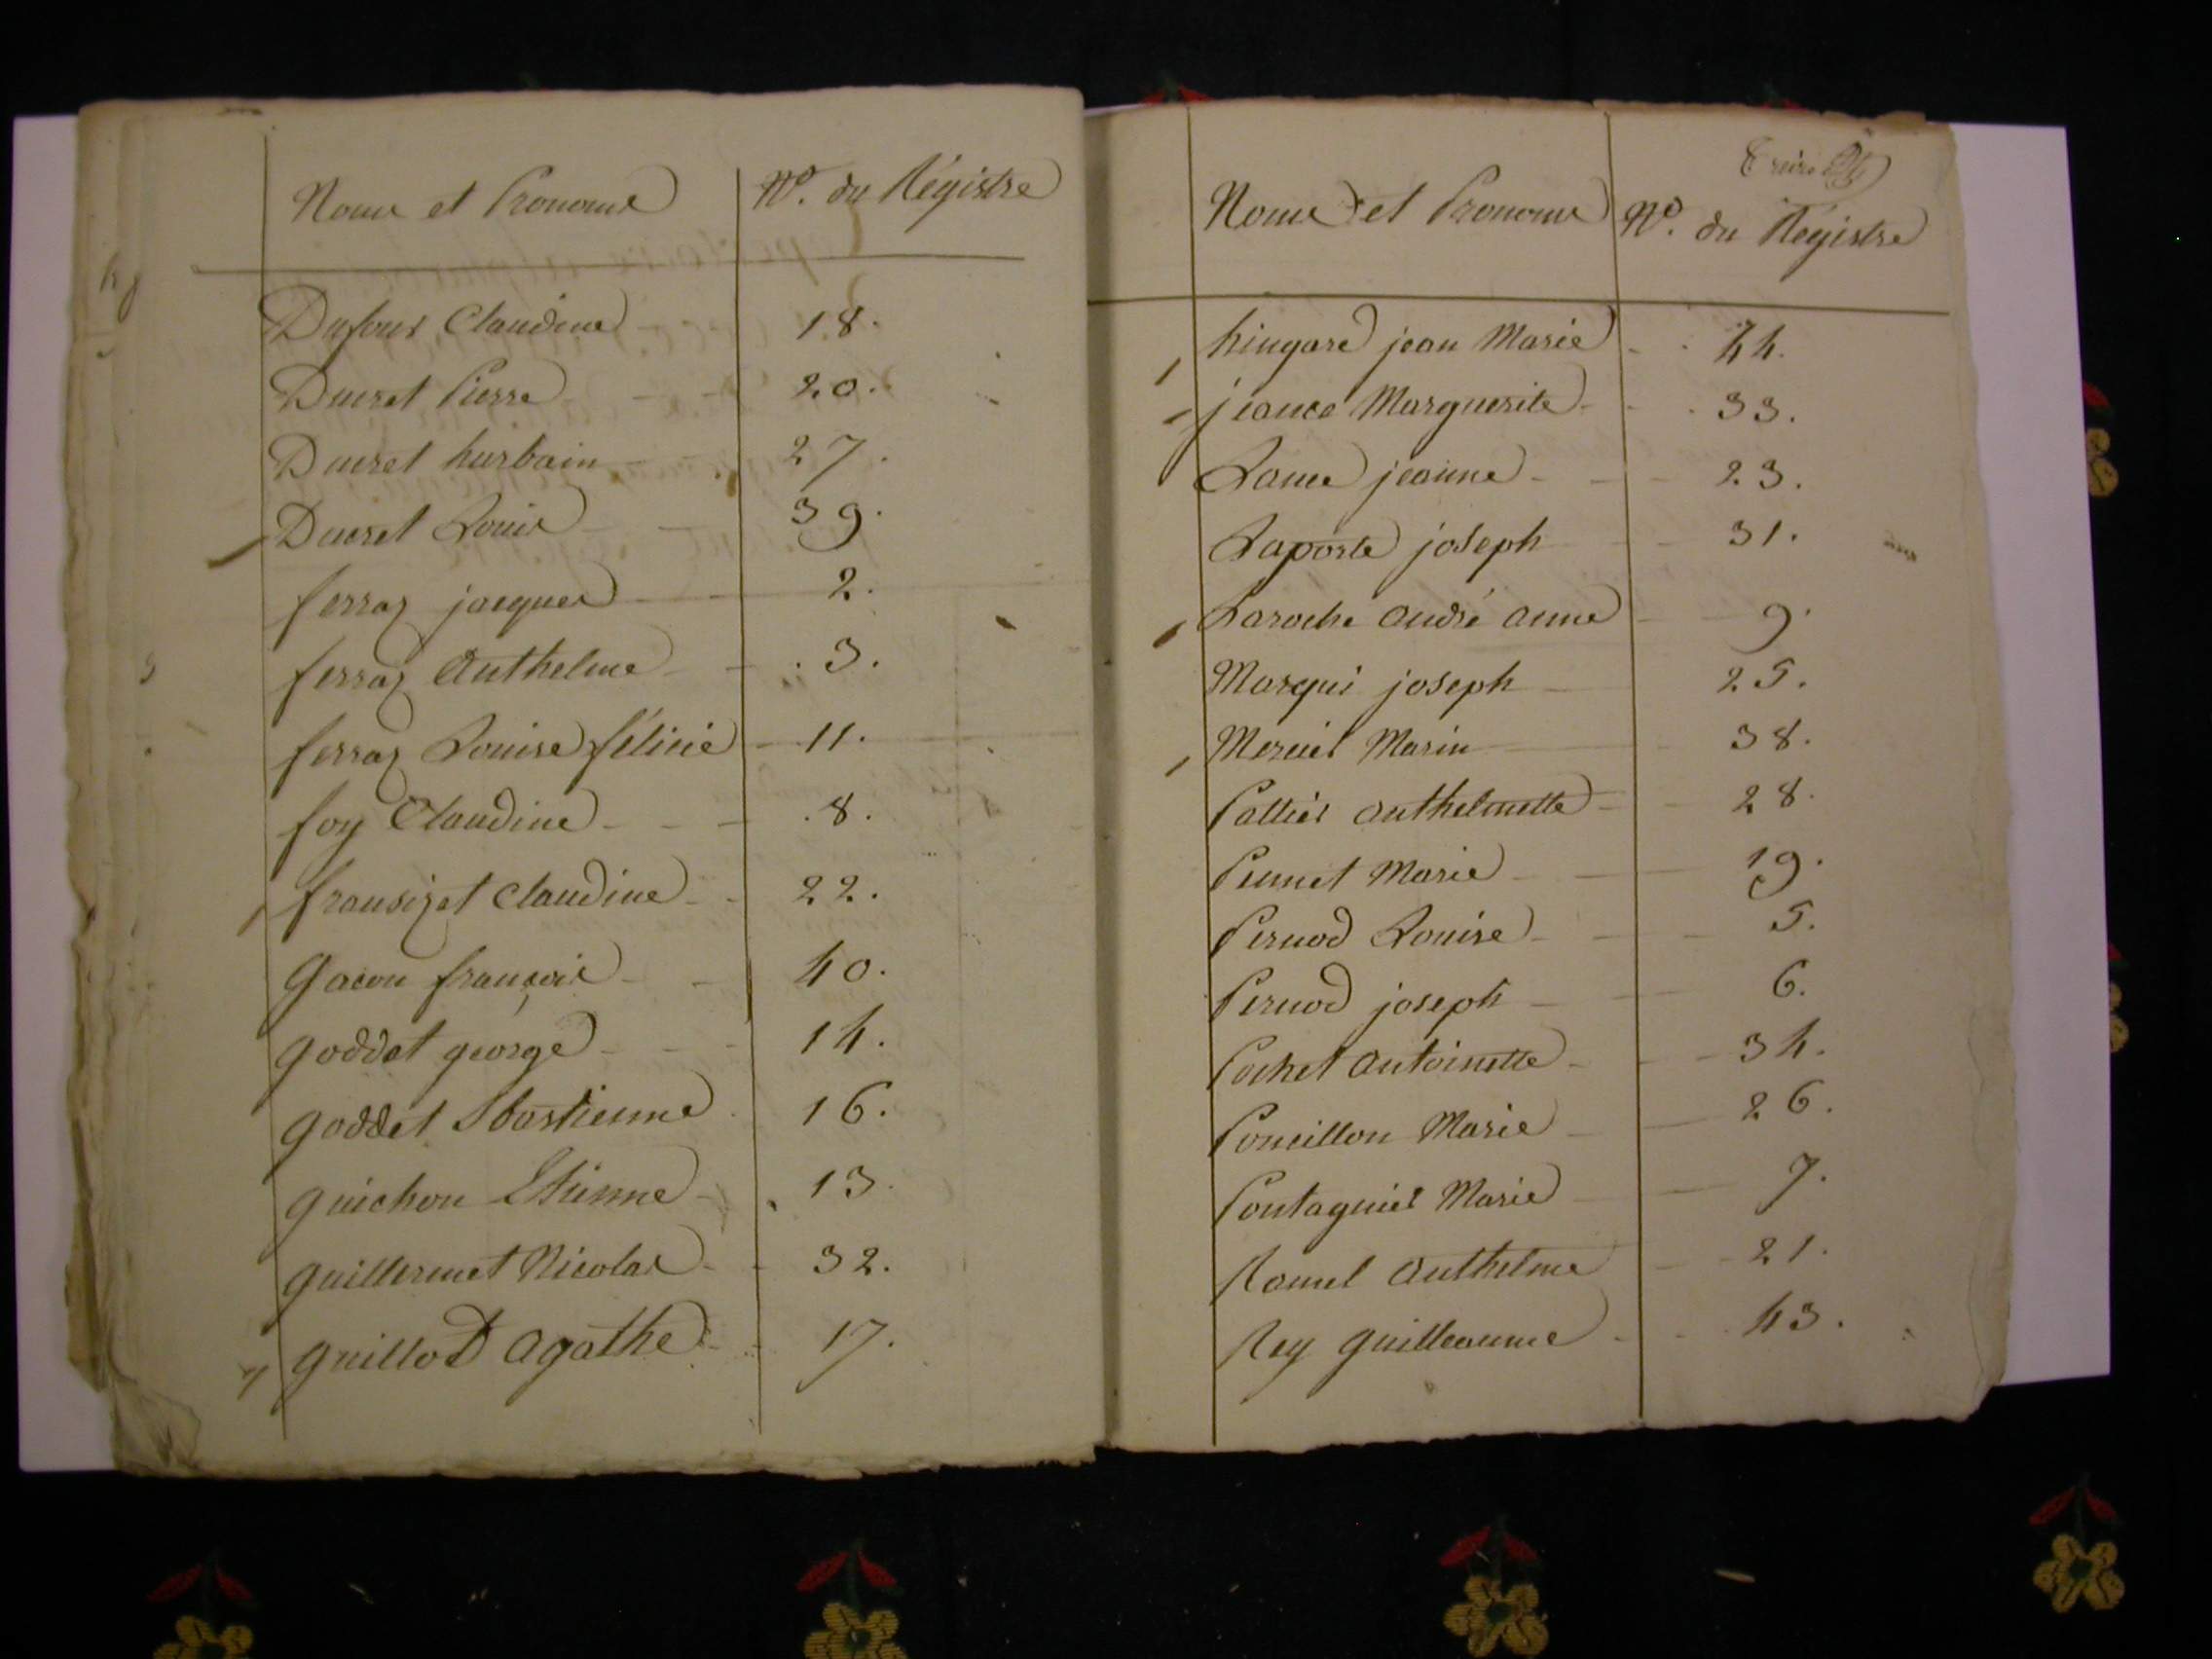 Noms et Prenoms N.º du Régistre
Dufour Claudine 18.
Ducret Pierre 20.
Ducret hurbain 27.
Ducret Louis 39.
ferraz jacques 2.
ferraz Anthelme 3.
ferraz Louise félicie 11.
foy Claudine 8.
fransizet Claudine 22.
Gacon françois 40.
goddet george 14.
goddet Sbastienne 16.
guichon Etienne 13.
guillermet Nicolas 32.
guilloD agathe 17.
Noms et Prenoms N.º du Régistre
hingard jean Marie 44.
jeance Marguerite 33.
Lance jeanne 23.
Laporte joseph 31.
Laroche andré anne 9.
Marqui joseph 25.
Mercier Marin 38.
Pattier anthelmette 28.
Peunet Marie 19.
Pernod Louise 5.
Pernod joseph 6.
Pochet antoinette 34.
Poncillon Marie 26.
Pontagnier Marie 7.
Ramel anthelme 21.
Rey guilleaume 43.